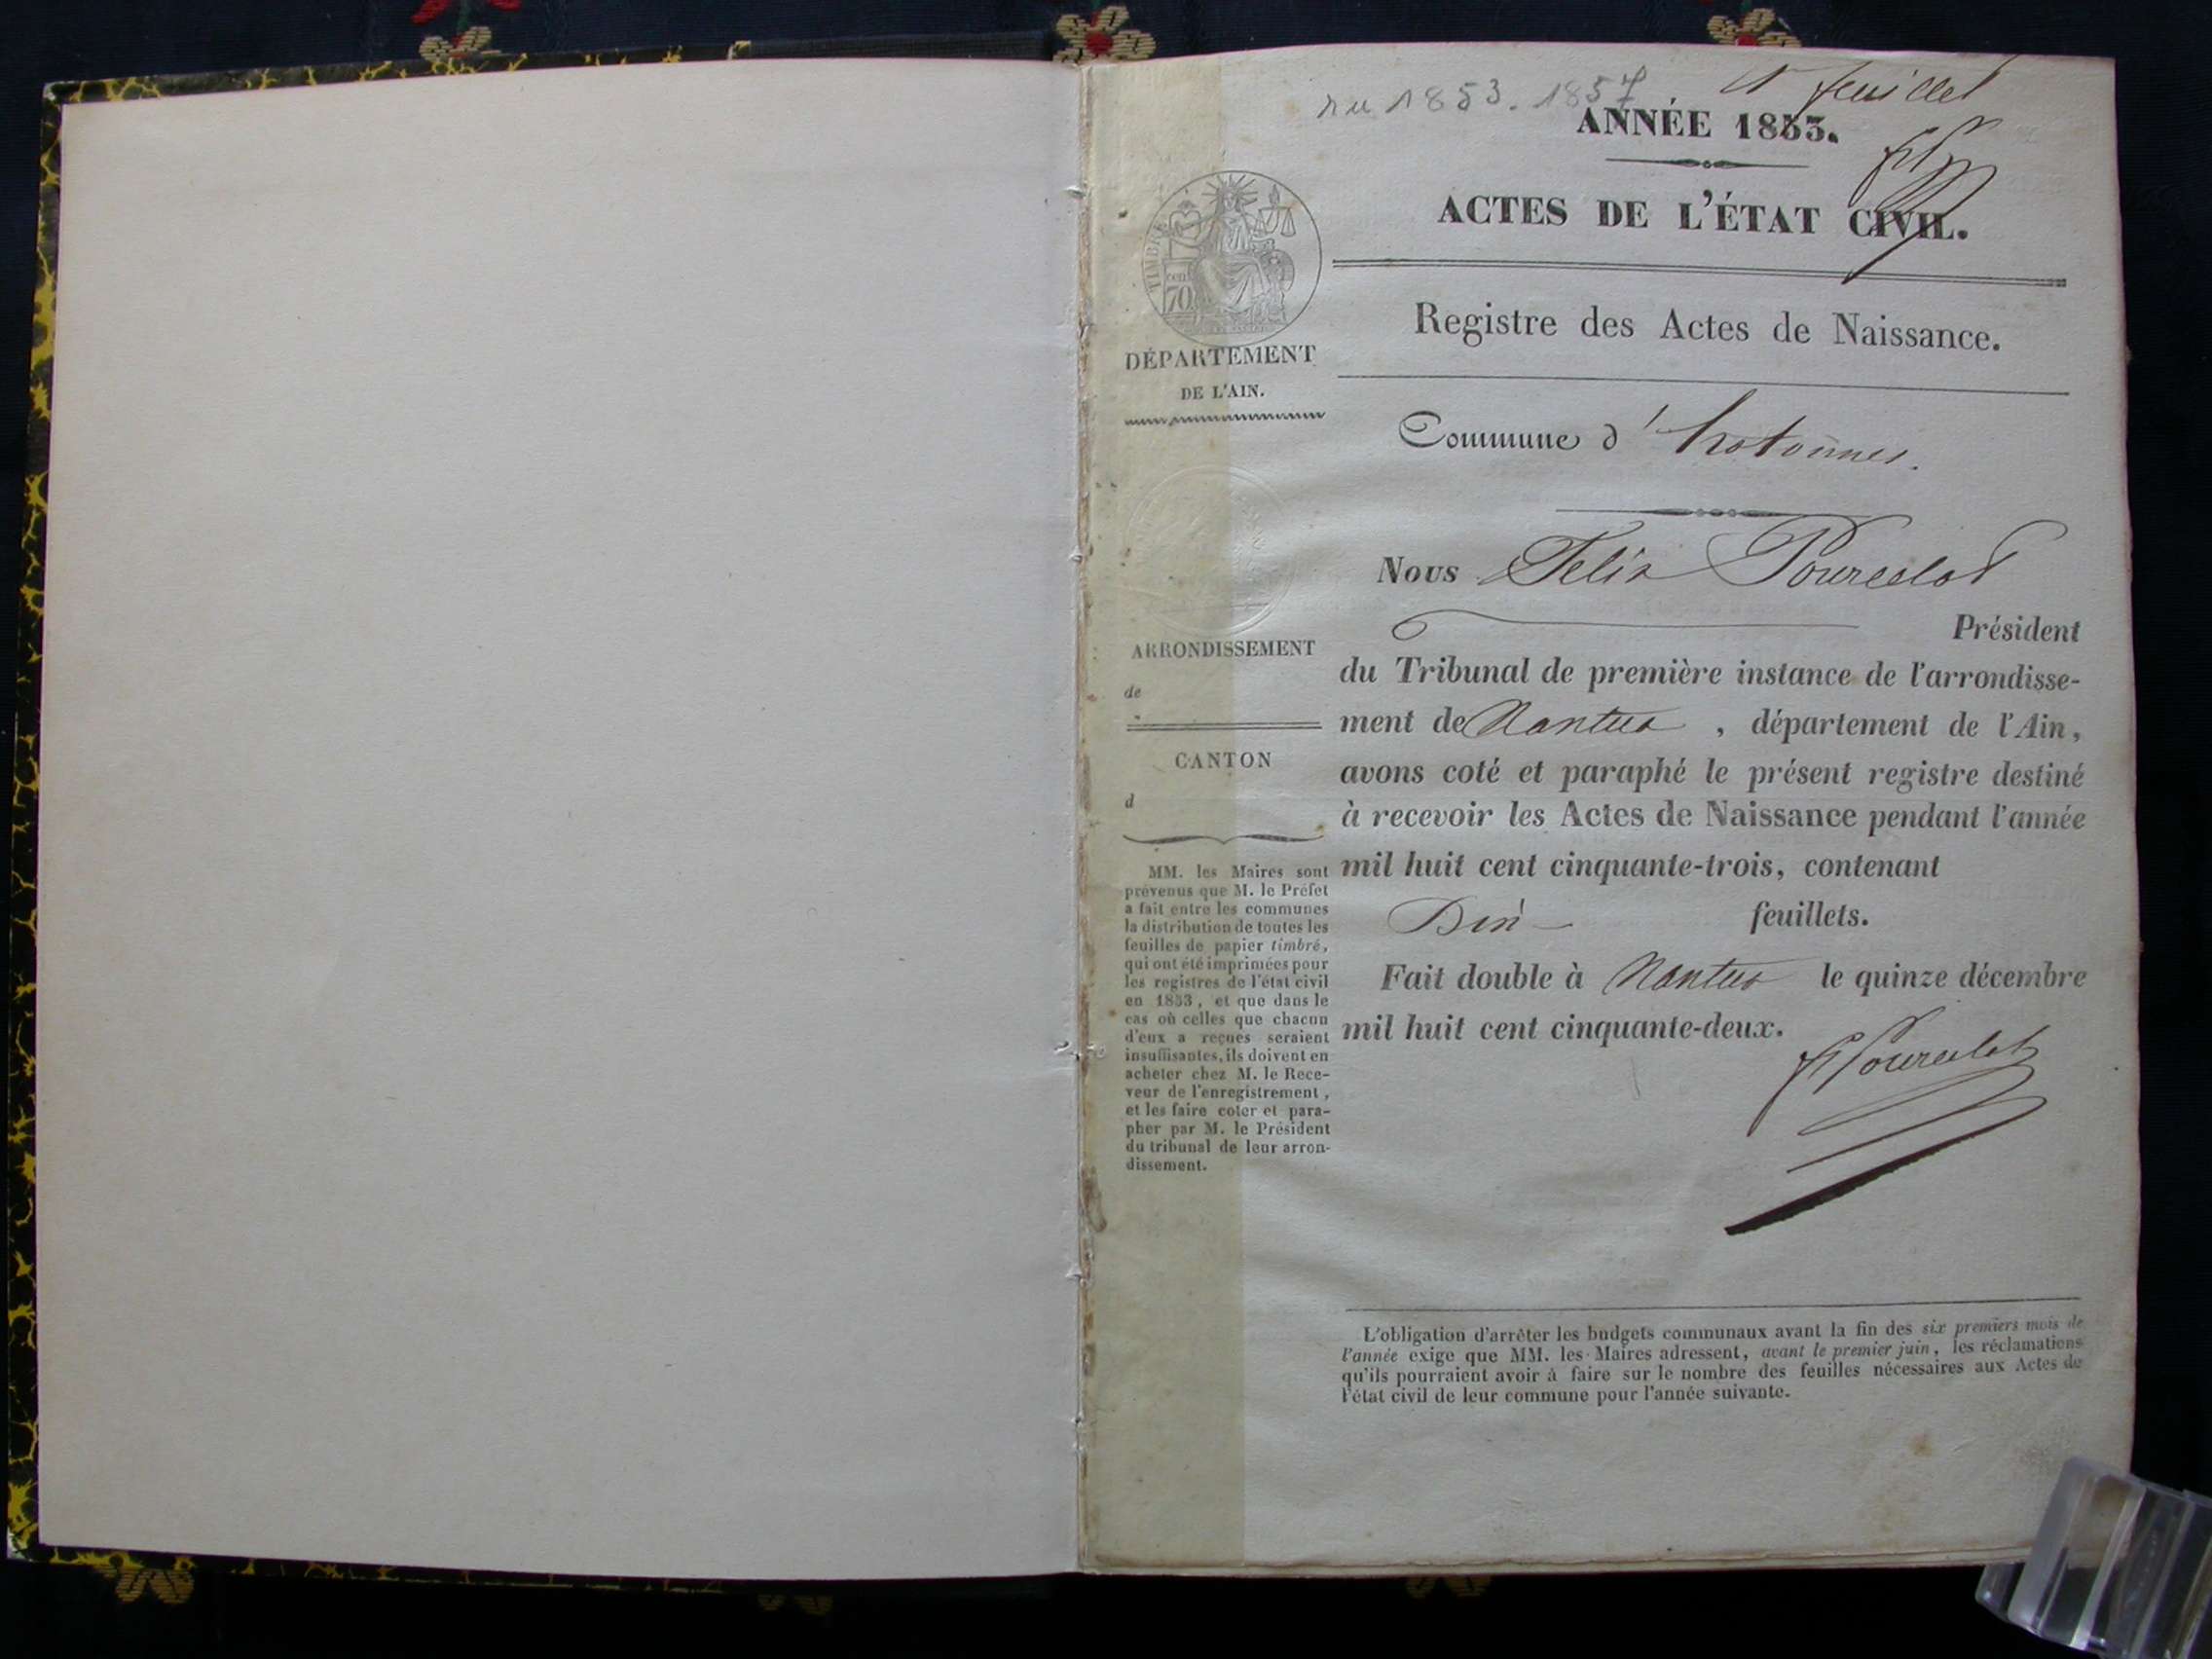 nu 1853. 1857
1er feuillet
ANNÉE 1853.
ACTES DE L'ÉTAT CIVIL.
TIMBRE
cen
70
Registre des Actes de Naissance.
DÉPARTEMENT
DE L'AIN.
Commune d'hotonnes.
Nous Felix Pourcelot
Président
du Tribunal de première instance de l'arrondisse-
ment de Nantua, département de l'Ain,
avons coté et paraphé le présent registre destiné
à recevoir les Actes de Naissance pendant l'année
mil huit cent cinquante-trois, contenant
Dix feuillets.
Fait double à Nantua le quinze décembre
mil huit cent cinquante-deux.
F Pourcelot
ARRONDISSEMENT
de
CANTON
d
MM. les Maires sont
prévenus que M. le Préfet
a fait entre les communes
la distribution de toutes les
feuilles de papier timbré,
qui ont été imprimées pour
les registres de l'état civil
en 1853, et que dans le
cas où celles que chacun
d'eux a reçues seraient
insuffisantes, ils doivent en
acheter chez M. le Rece-
veur de l'enregistrement,
et les faire coter et para-
pher par M. le Président
du tribunal de leur arron-
dissement.
L'obligation d'arrêter les budgets communaux avant la fin des six premiers mois de
l'année exige que MM. les Maires adressent, avant le premier juin, les réclamations
qu'ils pourraient avoir à faire sur le nombre des feuilles nécessaires aux Actes de
l'état civil de leur commune pour l'année suivante.